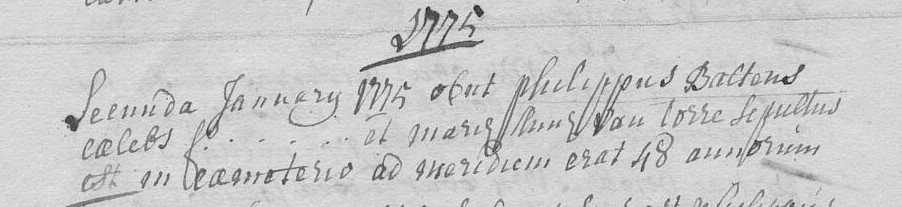 1775
Secunda January 1775 obiit philippus Baltens
cælebs f. . . . . . . . et mariæ Annæ Van torre sepultus
est in Cæmeterio ad meridiem erat 48 annorum